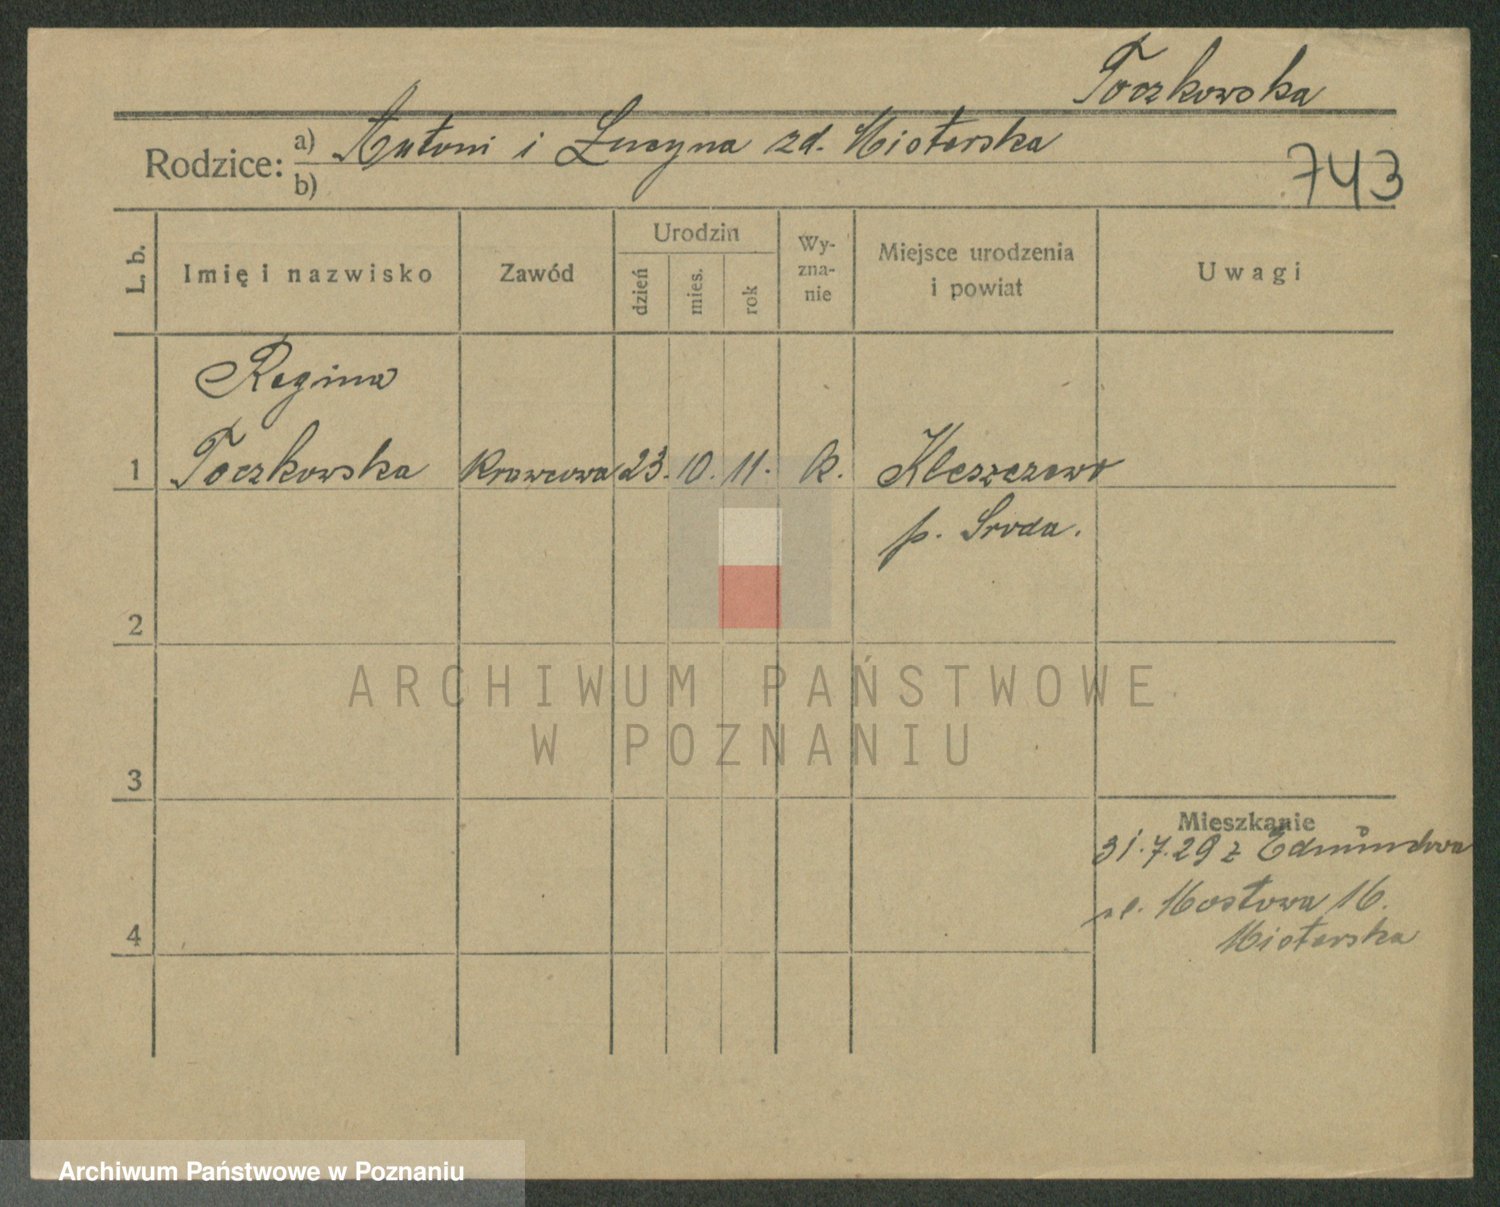 Toczkowska
Rodzice: a) Antoni i Lucyna zd. Mioterska
b)
743
L. b.
Imię i nazwisko
Zawód
Urodzin
dzień
mies.
rok
Wy-
zna-
nie
Miejsce urodzenia
i powiat
Uwagi
Regina
1 Toczkowska Krawcowa 23. 10. 11. k. Kleszczewo
p. Sroda.
2
ARCHIWUM PAŃSTWOWE
W POZNANIU
3
Mieszkanie
31.7.29 z Edmundowa
ul. Mostowa 16.
4
Mioterska
Archiwum Państwowe w Poznaniu